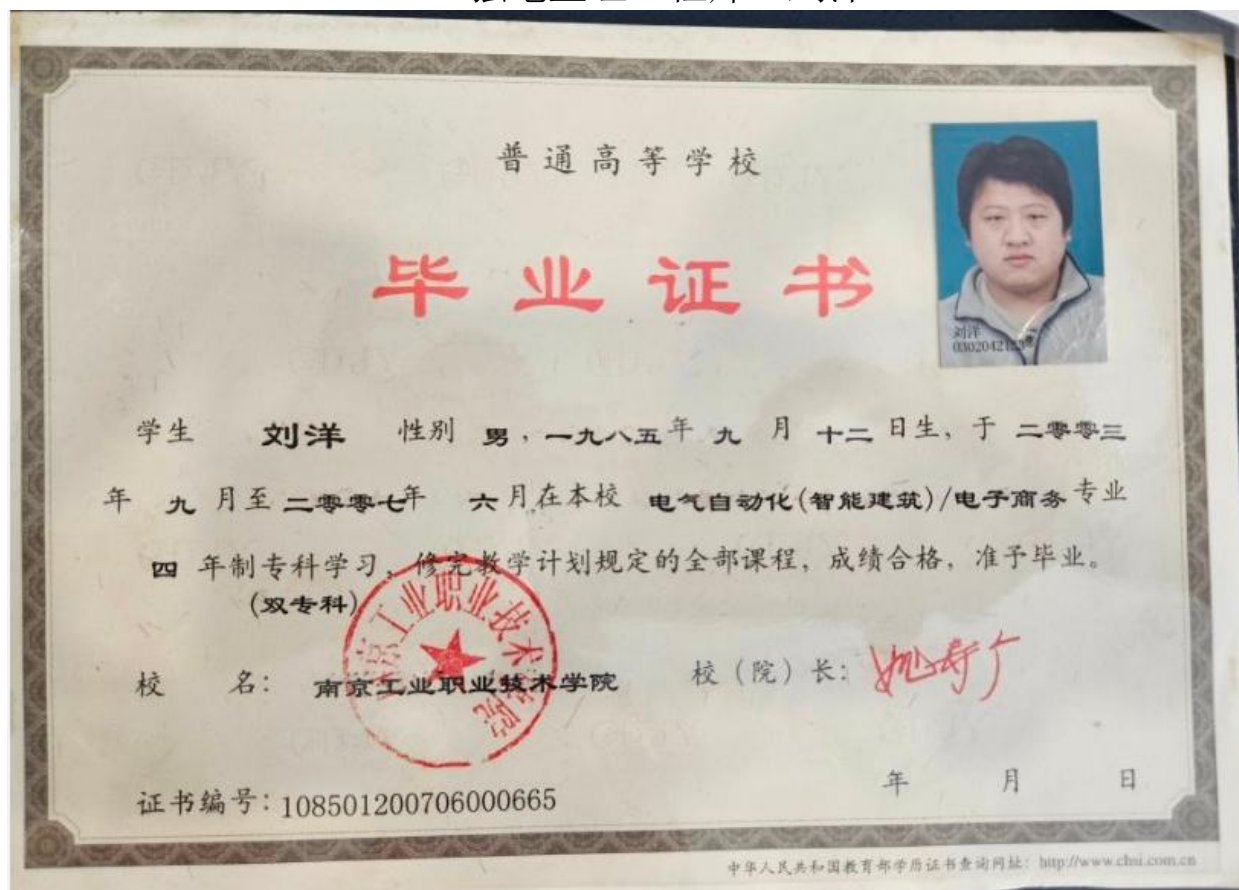 普通高等学校
毕业证书
刘洋
学生 刘洋 性别 男，一九八五年 九 月 十二 日生，于 二零零三
年 九 月至 二零零七年 六月在本校 电气自动化(智能建筑)/电子商务 专业
四 年制专科学习，修完教学计划规定的全部课程，成绩合格，准予毕业。
(双专科)
校 名： 南京工业职业技术学院 校（院）长：姚寿广
南京工业职业技术学院
年 月 日
证书编号：108501200706000665
中华人民共和国教育部学历证书查询网址：http://www.chsi.com.cn